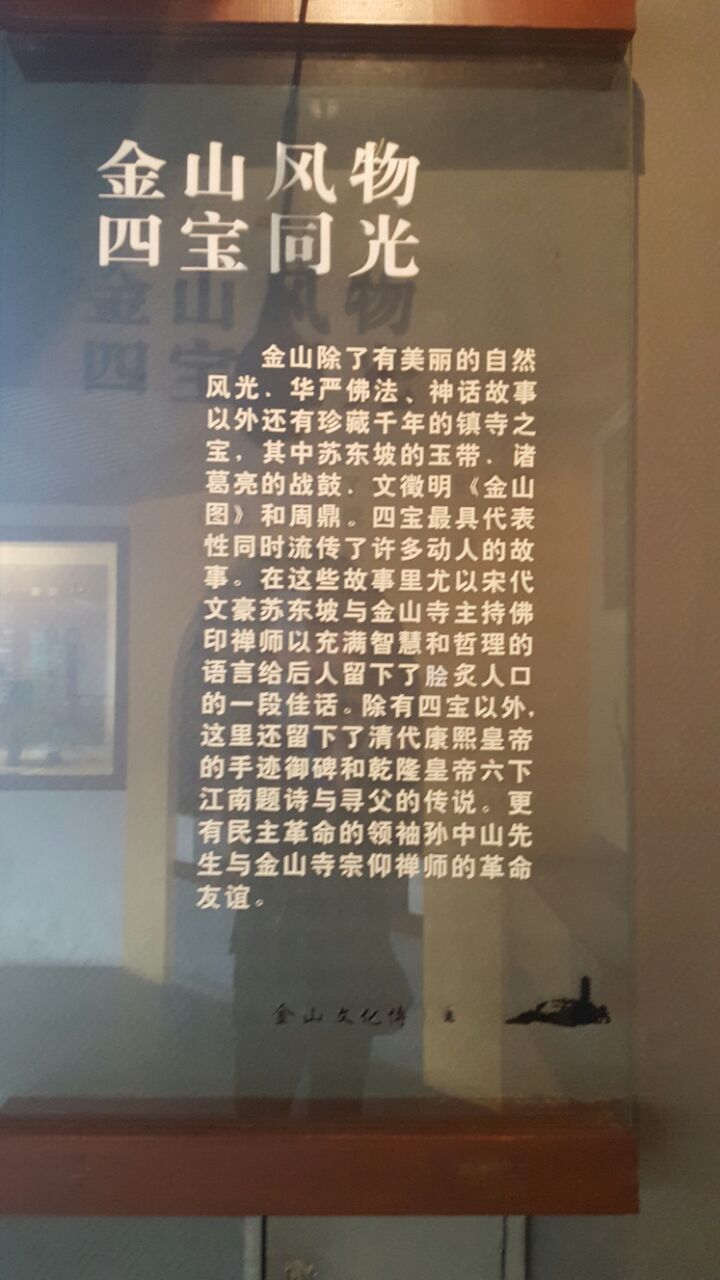 金山风物
四宝同光
金山除了有美丽的自然
风光．华严佛法、神话故事
以外还有珍藏千年的镇寺之
宝，其中苏东坡的玉带．诸
葛亮的战鼓．文徵明《金山
图》和周鼎。四宝最具代表
性同时流传了许多动人的故
事。在这些故事里尤以宋代
文豪苏东坡与金山寺主持佛
印禅师以充满智慧和哲理的
语言给后人留下了脍炙人口
的一段佳话。除有四宝以外，
这里还留下了清代康熙皇帝
的手迹御碑和乾隆皇帝六下
江南题诗与寻父的传说。更
有民主革命的领袖孙中山先
生与金山寺宗仰禅师的革命
友谊。
金山文化博